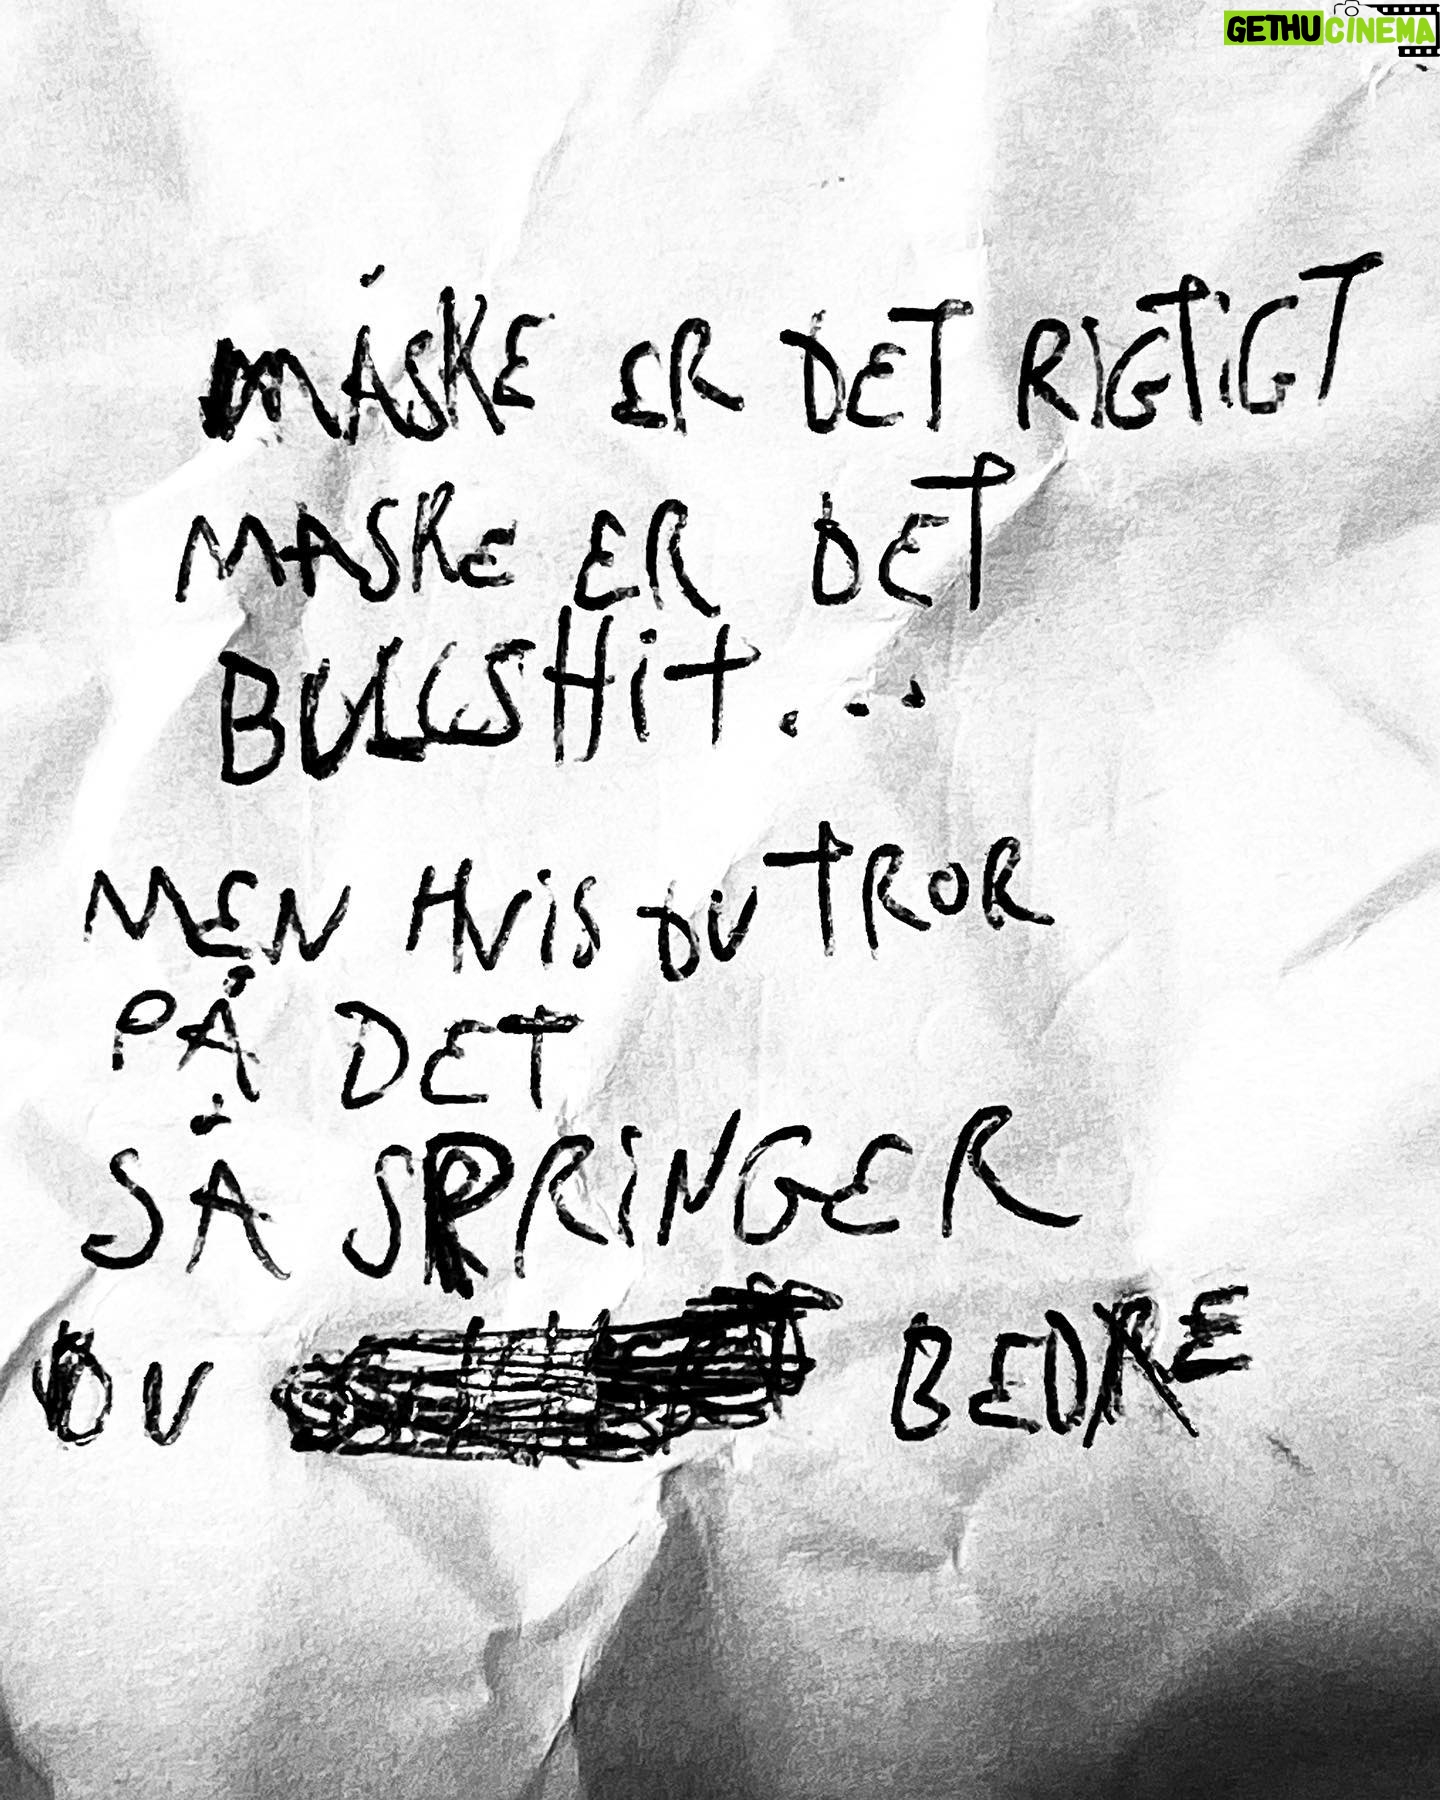 GETHUCINEMA
MÅSKE ER DET RIGTIGT
MASKE ER DET
BULLSHIT...
MEN HVIS DU TROR
PÅ DET
SÅ SPRINGER
DU BEDRE